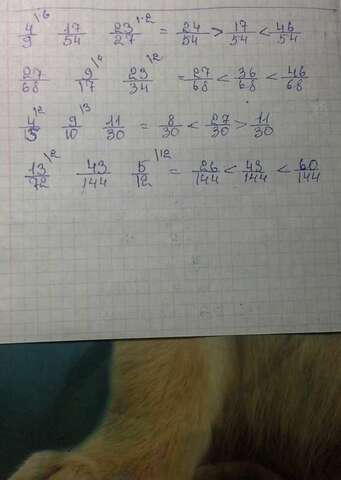 4/9 \6 17/54 23/27 \·2 = 24/54 > 17/54 < 46/54
27/68 9/17 \4 23/34 \2 = 27/68 < 36/68 < 46/68
4/15 \2 9/10 \3 11/30 = 8/30 < 27/30 > 11/30
13/72 \2 43/144 5/12 \12 = 26/144 < 43/144 < 60/144